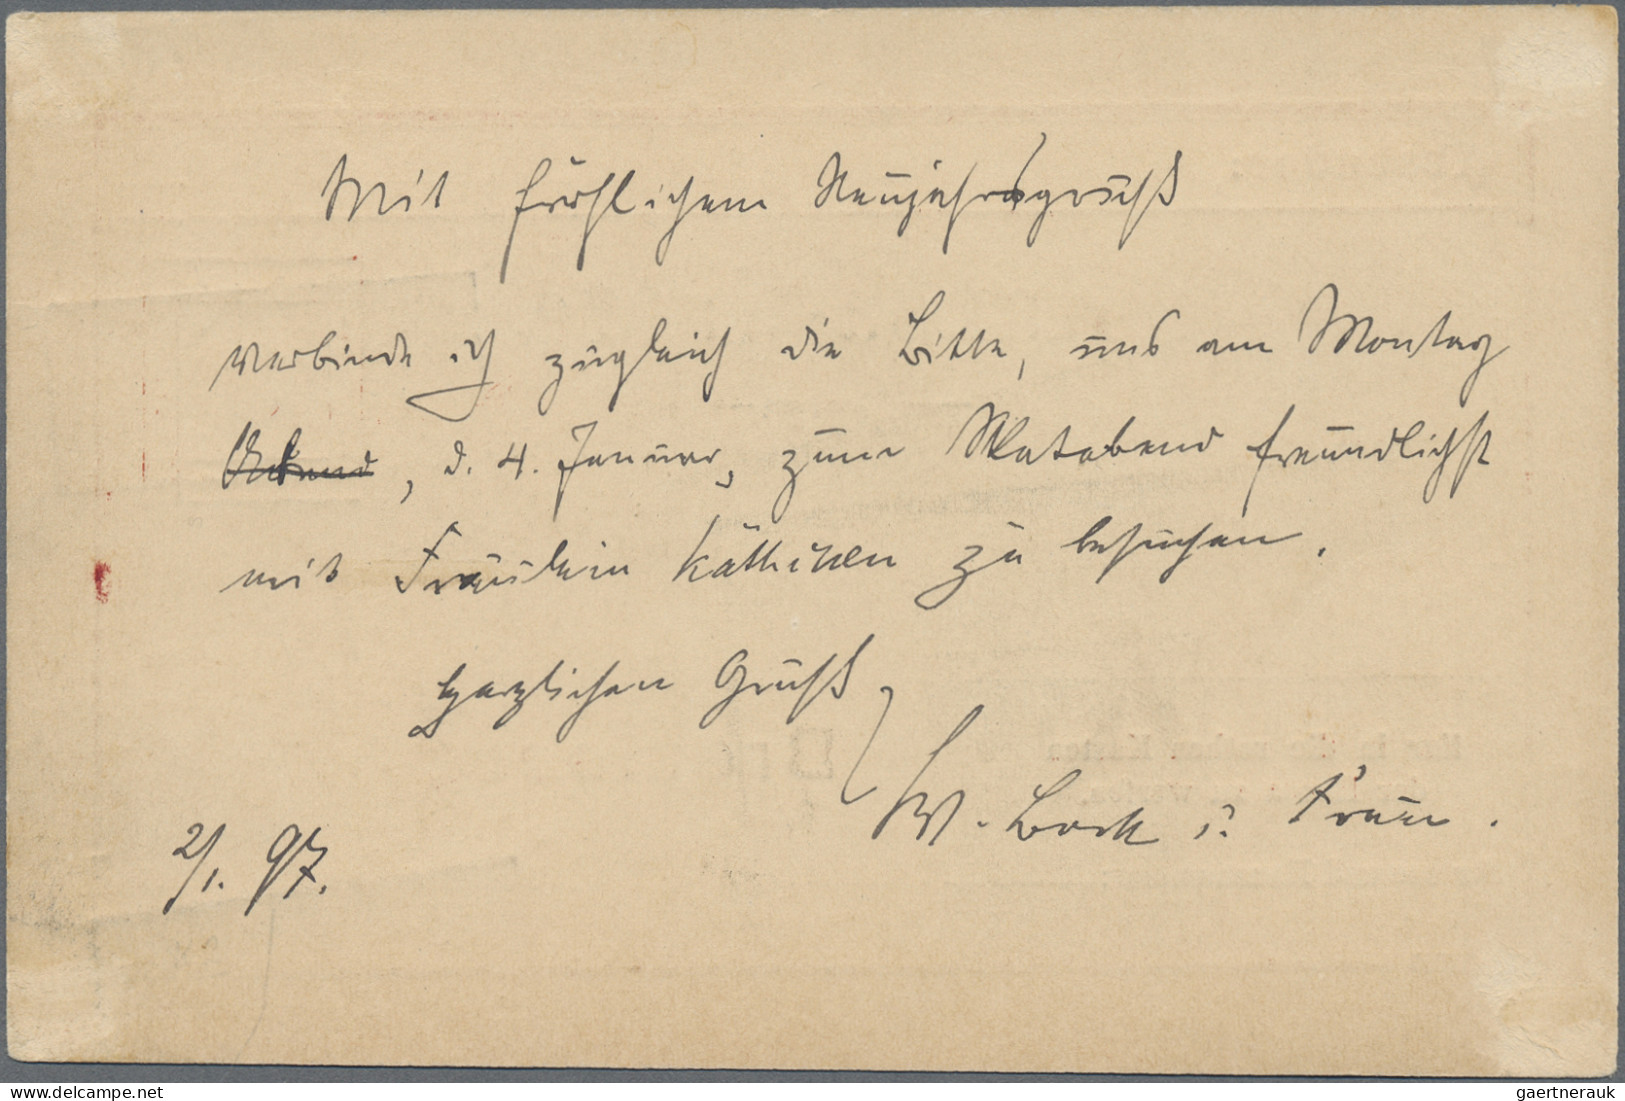 Mit fröhlichem Neujahrsgruß
verbinde ich zugleich die Bitte, uns am Montag
Abend, d. 4. Januar, zum Skatabend freundlichst
mit Fräulein Käthchen zu besuchen.
Herzlichen Gruß,
W. Bock u. Frau.
2/1. 97.
www.delcampe.net
gaertnerauk